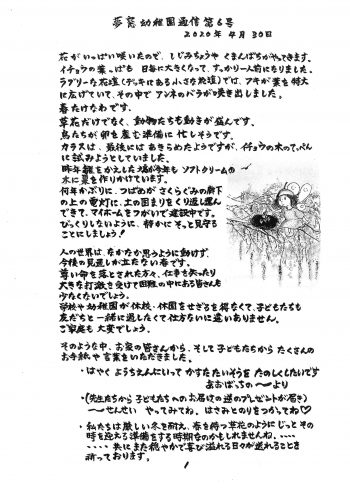 夢窓幼稚園通信第6号
2020年4月30日
花がいっぱい咲いたので、しじみちょうや くまんばちがやってきます。
イチョウの葉っぱも 日毎に大きくなって、すっかり一人前になりました。
ラブリーな花壇(デッキにある小さな花壇)では、フキが葉を特大
に広げていて、その中で アンネのバラが咲き出しました。
春たけなわです。
草花だけでなく、動物たちも動きが盛んです。
鳥たちが 卵を産む準備に忙しそうです。
カラスは、最後には あきらめたようですが、イチョウの木のてっぺん
に試みようとしていました。
昨年雛をかえした鳩が今年も ソフトクリームの
木に巣を作りかけています。
何年かぶりに、つばめが さくらぐみの廊下
の上の電灯に、土の固まりをくり返し運ん
できて、マイホームをつがいで建設中です。
びっくりしないように、静かに そっと見守る
ことにしましょう!
人の世界は、なかなか思うように動けず、
今後の見通しが立たない春です。
尊い命を落とされた方々、仕事を失ったり
大きな打激を受けて困難の中にある皆さんも
少なくないでしょう。
学校や幼稚園が休校・休園をせざるを得なくて、子どもたちも
友だちと一緒に過したくて仕方ないに違いありません。
ご家庭も 大変でしょう。
そのような中、お家の皆さんから、そして子どもたちから たくさんの
お手紙や言葉をいただきました。
・はやく ようちえんにいって かすたたいそうを たのしくしたいです
あおばっちの 〜より
・(先生たちから子どもたちへのお届けの逆のプレゼントが届き)
〜せんせい やってみてね。はさみとのりをつかってね♡
・私たちは 厳しい冬を耐え、春を待つ草花のようにじっと その
時を迎える準備をする時期なのかもしれませんね.....
.....共にまた穏やかで喜び溢れる日々が送れることを
祈っております。
1